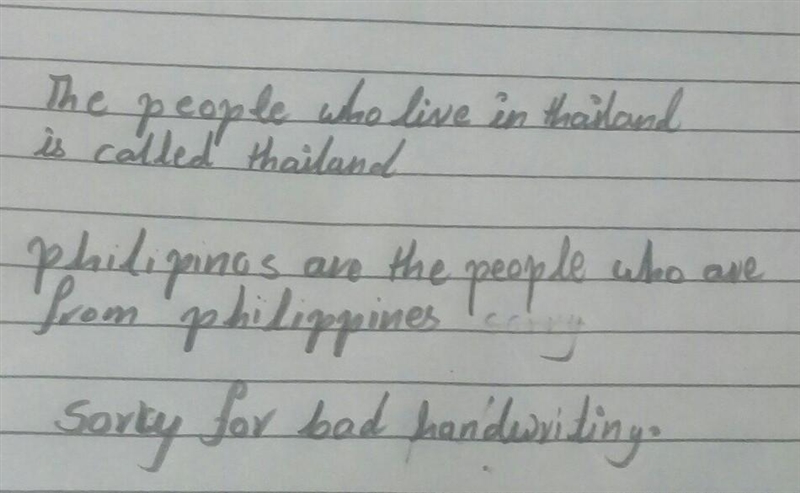 The people who live in thailand
is called thailand
philipinos are the people who are
from philippines sorry
sorry for bad handwriting.